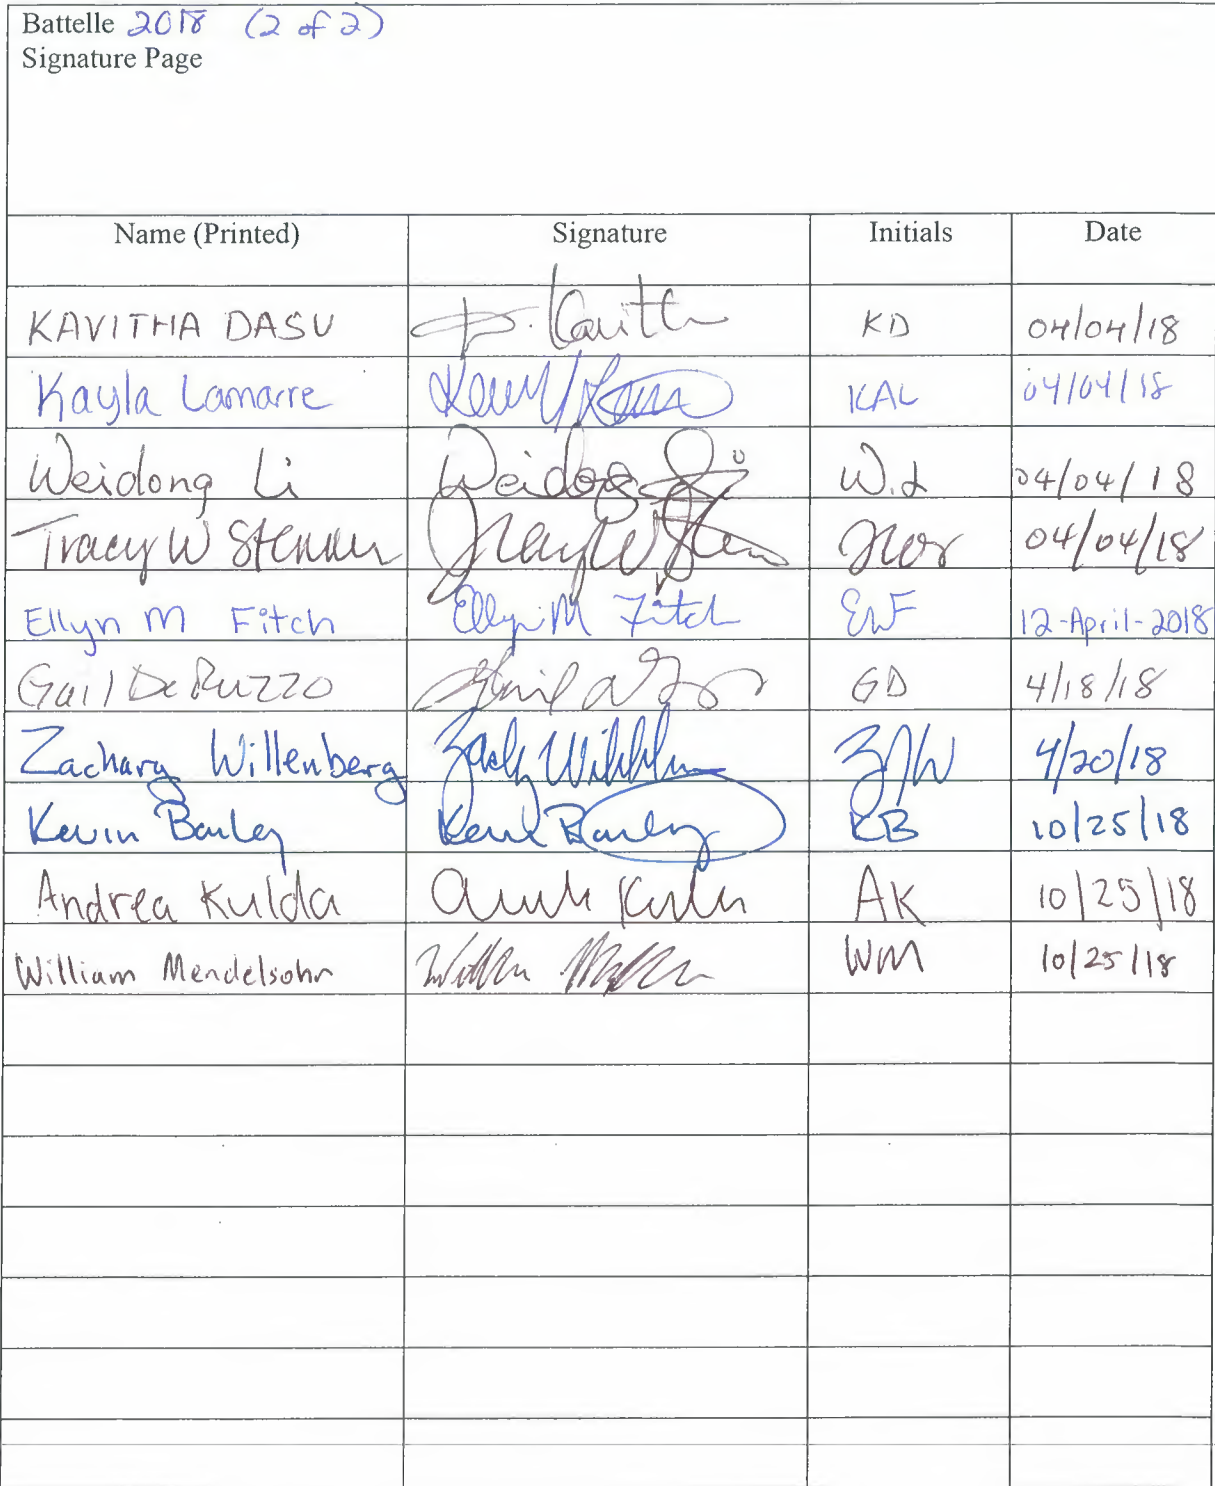 Battelle 2018 (2 of 2)
Signature Page
Name (Printed) Signature Initials Date
KAVITHA DASU D. Kavitha KD 04/04/18
Kayla Lamarre KAL 04/04/18
Weidong Li Weidong Li W.L 04/04/18
Tracy W Stenner Tracy W Sten 04/04/18
Ellyn M Fitch Ellyn M Fitch EMF 12-April-2018
Gail DeRuzzo GD 4/18/18
Zachary Willenberg Zach Willen ZJW 4/20/18
Kevin Bailey Kevin Bailey KB 10/25/18
Andrea Kulda KuldA AK 10/25/18
William Mendelsohn WM 10/25/18